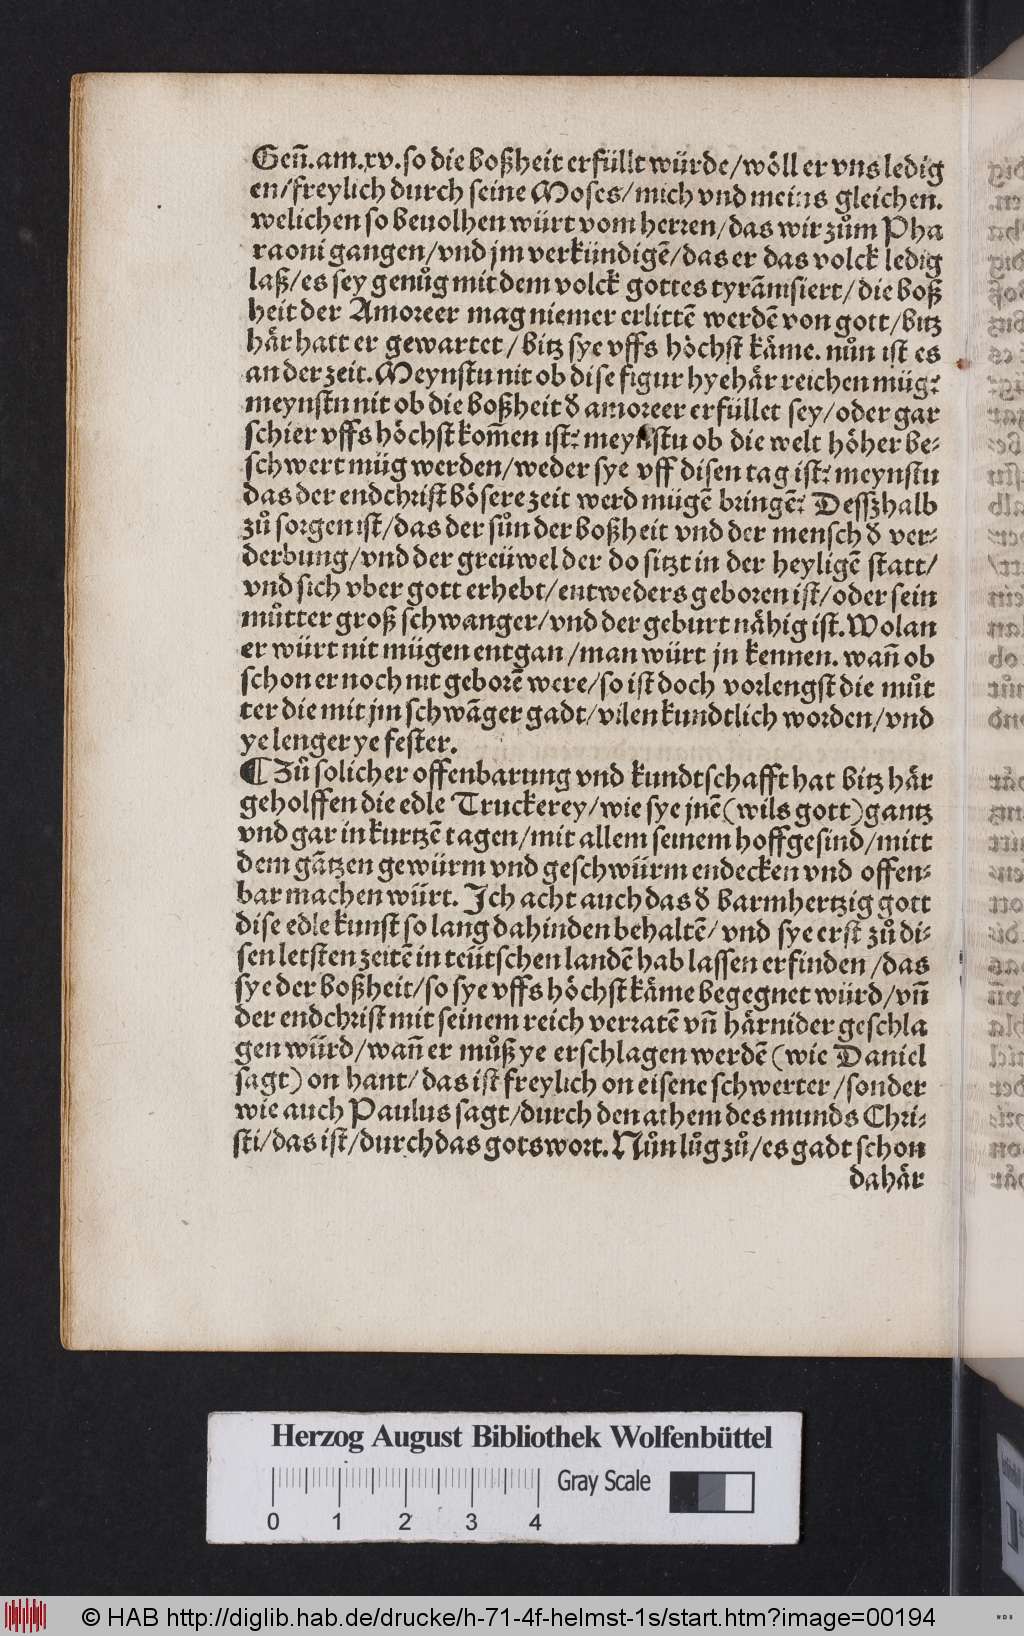 Geñ.am.xv.so die boßheit erfüllt würde/wöll er vns ledig
en/freylich durch seine Moses/mich vnd meins gleichen.
welichen so beuolhen würt vom herren/das wir zům Pha
raoni gangen/vnd jm verkündigē/das er das volck ledig
laß/es sey genůg mit dem volck gottes tyrānisiert/die boß
heit der Amoreer mag niemer erlittē werdē von gott/bitz
här hatt er gewartet/bitz sye vffs höchst käme. nůn ist es
an der zeit. Meynstu nit ob dise figur hyehär reichen müg?
meynstu nit ob die boßheit d̕ amoreer erfüllet sey/oder gar
schier vffs höchst kom̄en ist? meynstu ob die welt höher be-
schwert müg werden/weder sye vff disen tag ist? meynstu
das der endchrist bösere zeit werd mügē bringē? Dessz halb
zů sorgen ist/das der sůn der boßheit vnd der mensch d̕ ver-
derbung/vnd der greüwel der do sitzt in der heyligē statt/
vnd sich vber gott erhebt/entweders geboren ist/oder sein
můtter groß schwanger/vnd der geburt nähig ist. Wolan
er würt nit mügen entgan/man würt jn kennen. wañ ob
schon er noch nit geborē were/so ist doch vorlengst die můt
ter die mit jm schwāger gadt/vilen kundtlich worden/vnd
ye lenger ye fester.
¶ Zů solicher offenbarung vnd kundtschafft hat bitz här
geholffen die edle Truckerey/wie sye jnē(wils gott)gantz
vnd gar in kurtzē tagen/mit allem seinem hoffgesind/mitt
dem gātzen gewürm vnd geschwürm endecken vnd offen-
bar machen würt. Ich acht auch das d̕ barmhertzig gott
dise edle kunst so lang dahinden behaltē/vnd sye erst zů di-
sen letsten zeitē in teütschen landē hab lassen erfinden/das
sye der boßheit/so sye vffs höchst käme begegnet würd/vñ
der endchrist mit seinem reich verratē vñ härnider geschla
gen würd/wañ er můß ye erschlagen werdē(wie Daniel
sagt)on hant/das ist freylich on eisene schwerter/sonder
wie auch Paulus sagt/durch den athem des munds Chri-
sti/das ist/durch das gotswort. Nůn lůg zů/es gadt schon
dahär
Herzog August Bibliothek Wolfenbüttel
Gray Scale
0 1 2 3 4
© HAB http://diglib.hab.de/drucke/h-71-4f-helmst-1s/start.htm?image=00194